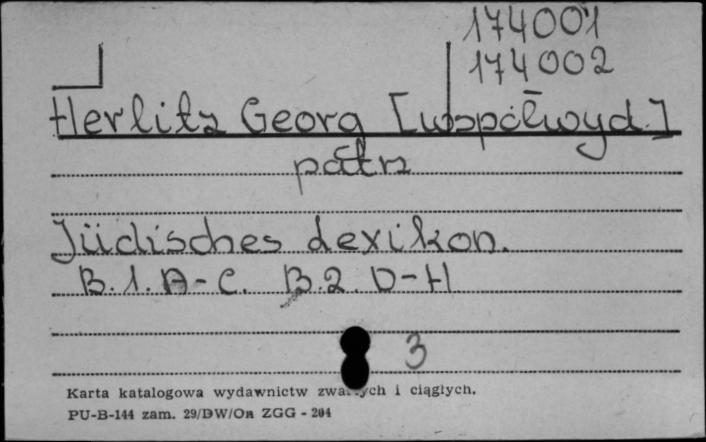 174001
174002
Herlitz Georg [współwyd.]
patrz
Jüdisches Lexikon.
B.1. A-C. B.2. D-H
3
Karta katalogowa wydawnictw zwartych i ciągłych.
PU-B-144 zam. 29/DW/On ZGG - 204